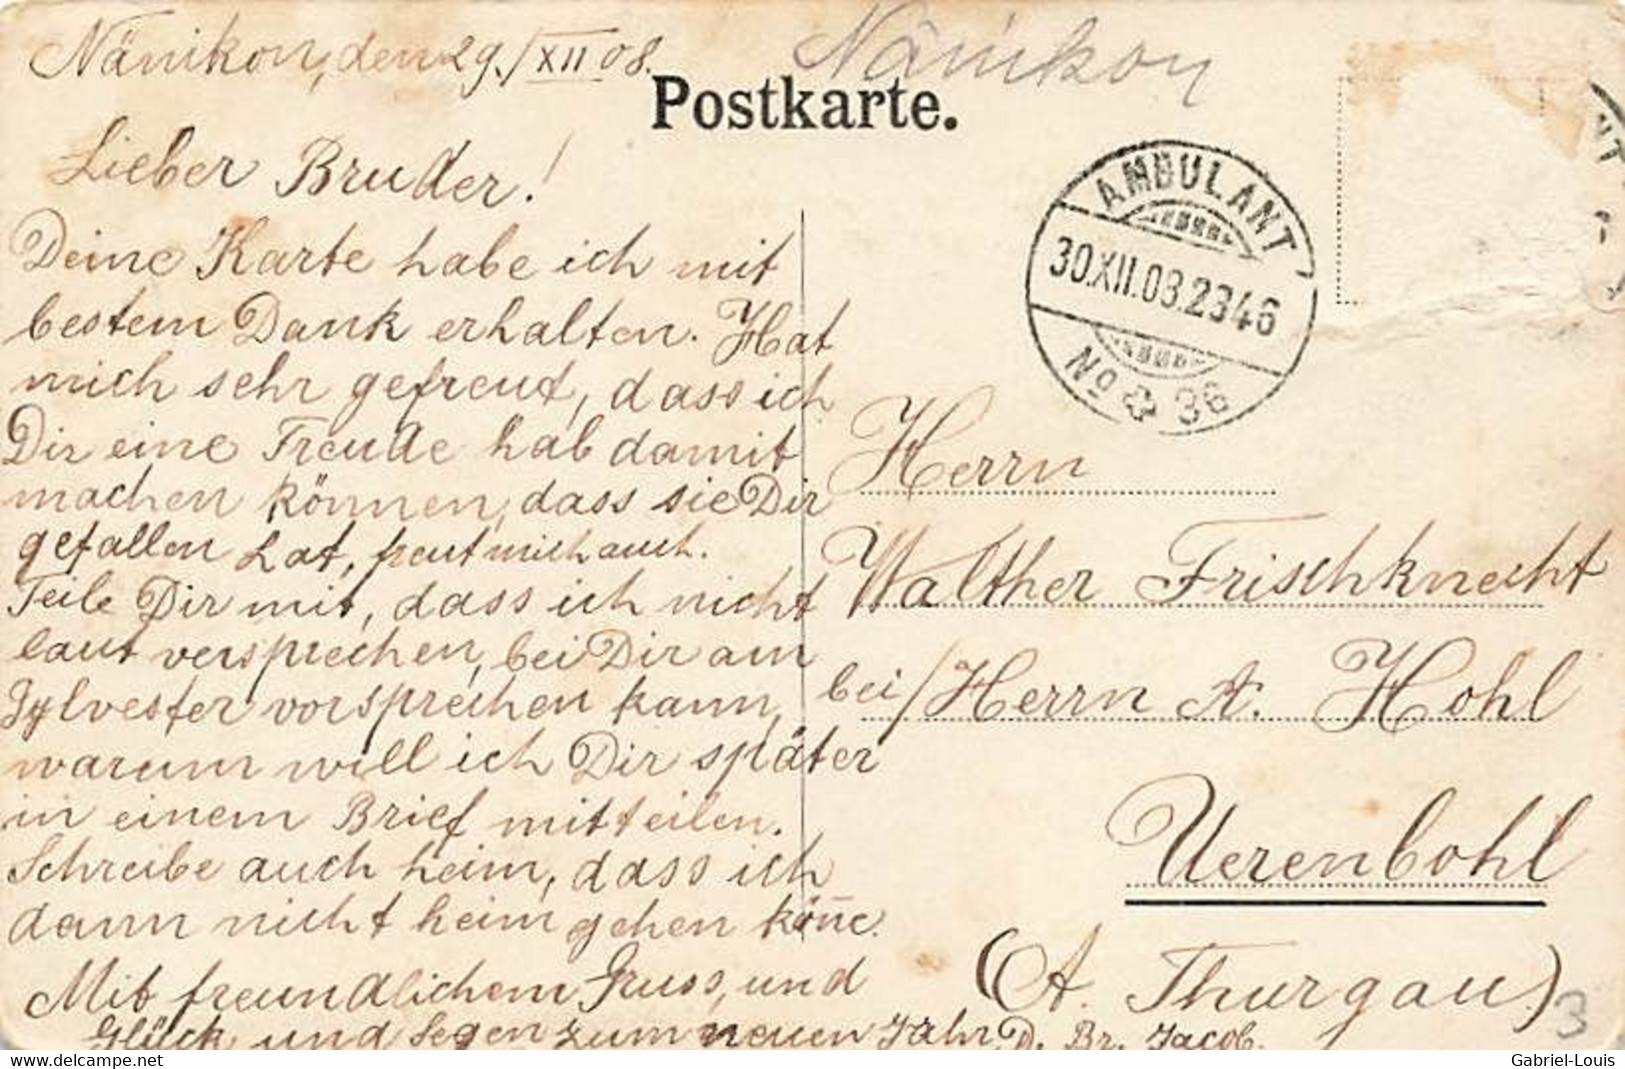 Nänikon, den 29./XII 08.
Nänikon
Postkarte.
Lieber Bruder!
Deine Karte habe ich mit
bestem Dank erhalten. Hat
mich sehr gefreut, dass ich
Dir eine Freude hab damit
machen können, dass sie Dir
gefallen hat, freut mich auch.
Teile Dir mit, dass ich nicht
laut versprechen, bei Dir am
Sylvester vorsprechen kann,
warum will ich Dir später
in einem Brief mitteilen.
Schreibe auch heim, dass ich
dann nicht heim gehen kön̄e.
Mit freundlichem Gruss, und
Glück und Segen zum neuen Jahr, D. Br. Jacob.
AMBULANT
30.XII.08.2346
No 36
NT
Herrn
Walther Frischknecht
bei/Herrn A. Hohl
Uerenbohl
(A. Thurgau)
3
delcampe.net
Gabriel-Louis